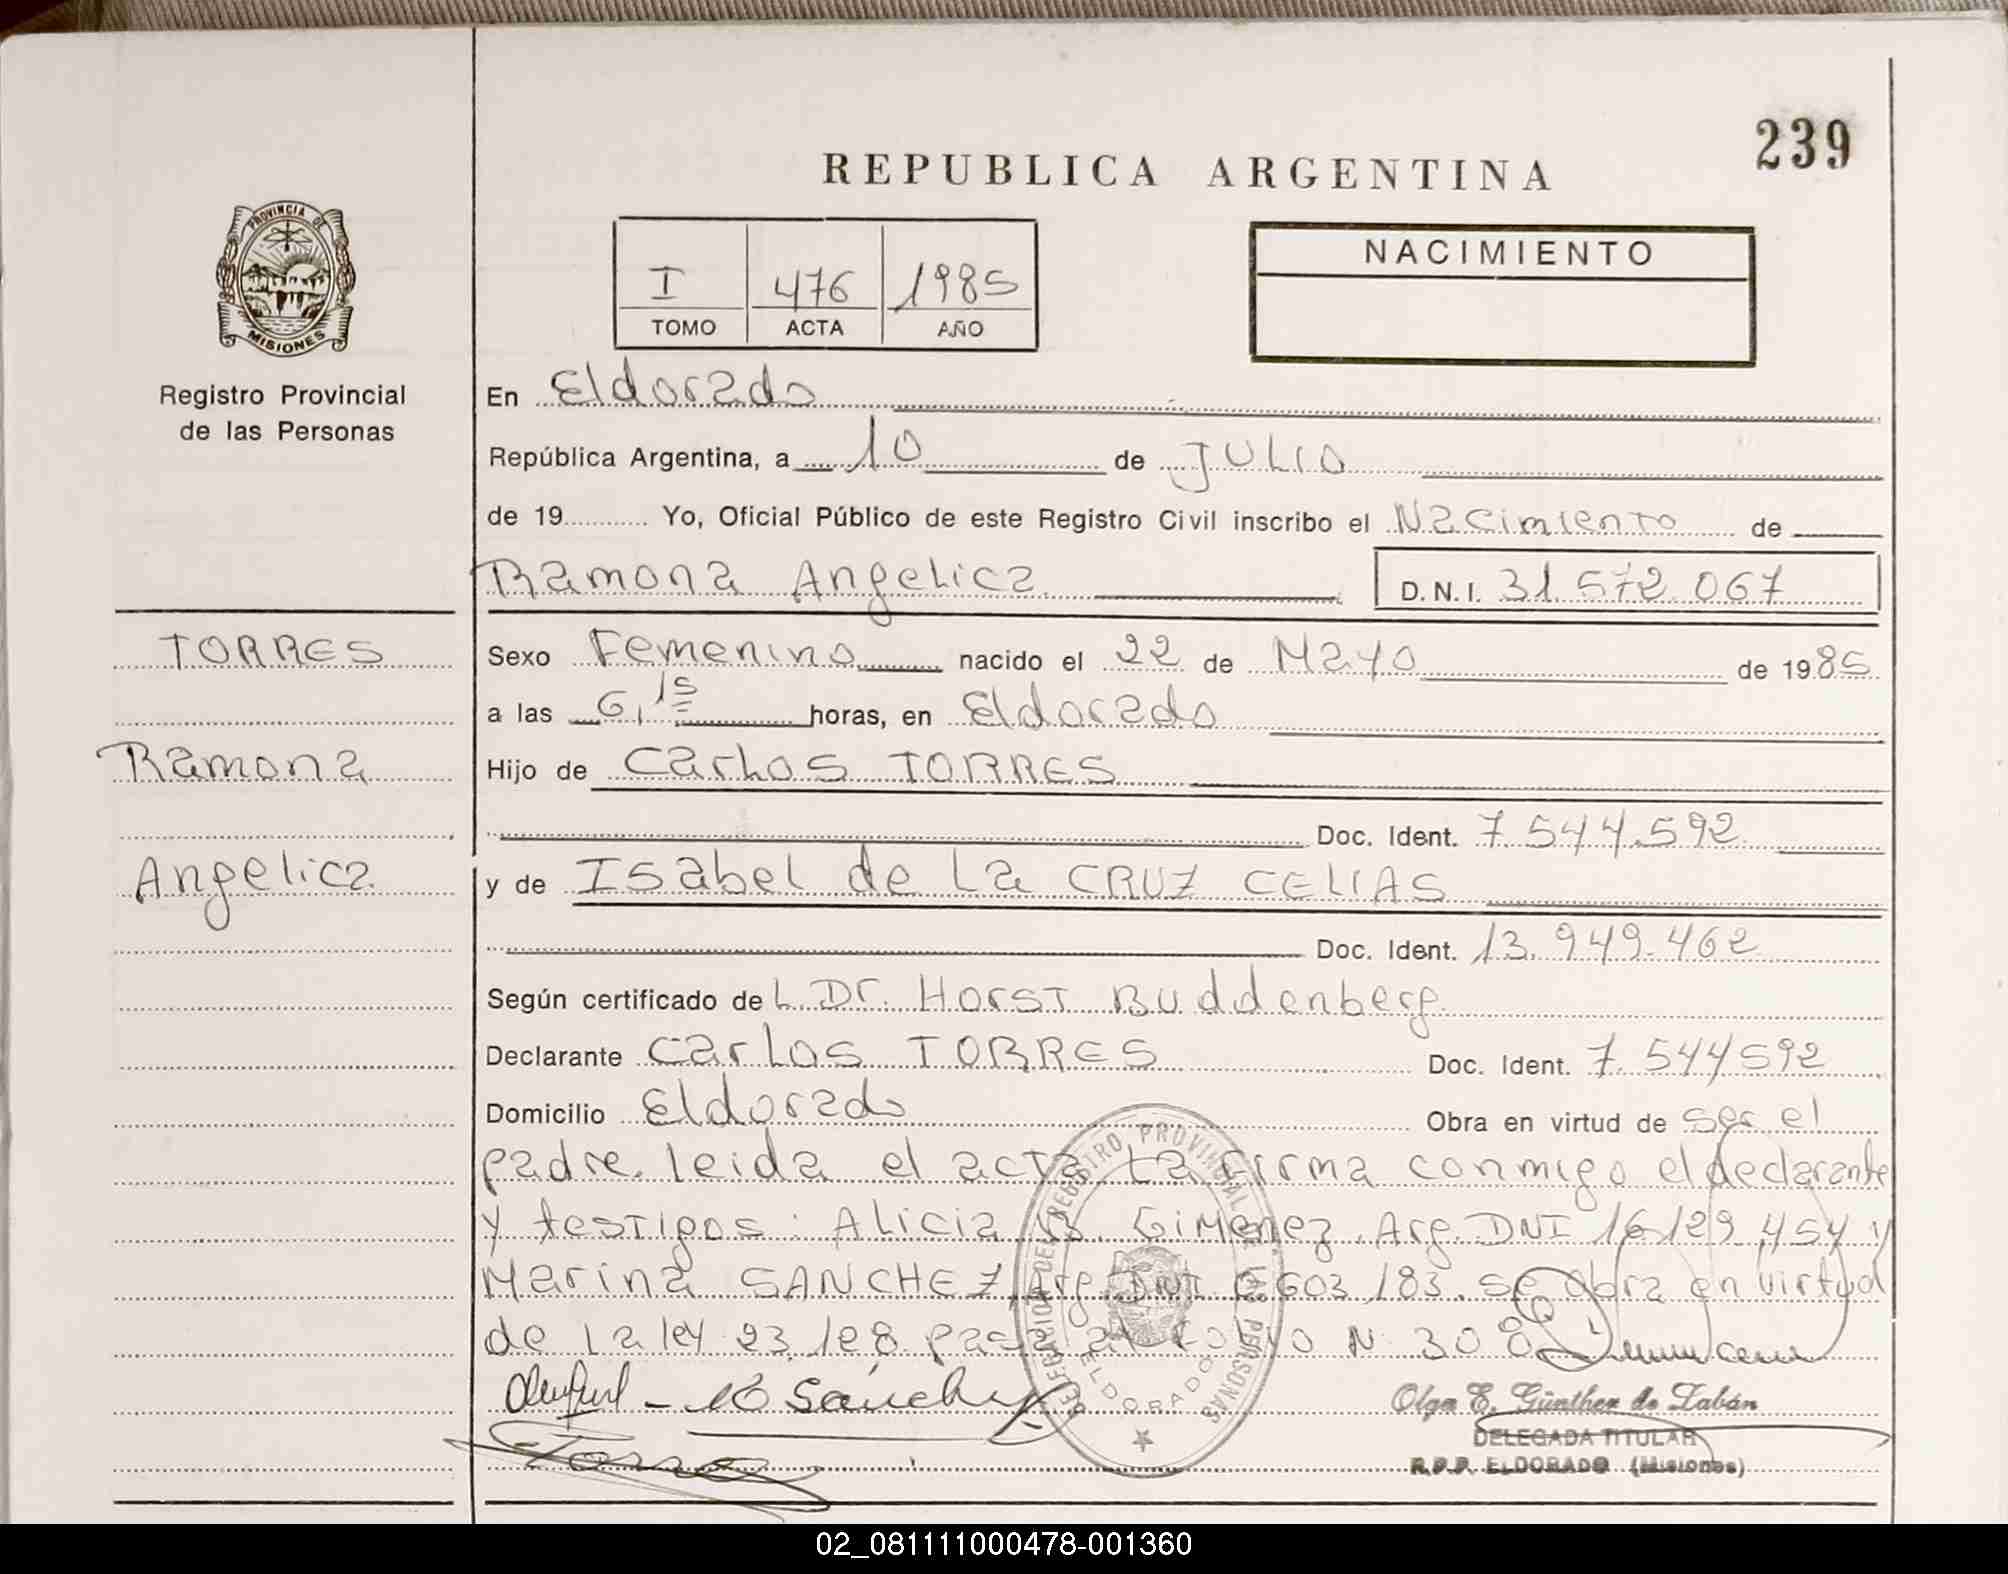 239
REPUBLICA ARGENTINA
PROVINCIA DE
MISIONES
Registro Provincial
de las Personas
I 476 1985
TOMO ACTA AÑO
NACIMIENTO
En Eldorado
República Argentina, a 10 de JULIO
de 19 Yo, Oficial Público de este Registro Civil inscribo el Nacimiento de
Ramona Angelica D.N.I. 31.572.067
TORRES
Ramona
Angelica
Sexo Femenino nacido el 22 de Mayo de 1985
a las 6,15 horas, en Eldorado
Hijo de Carlos TORRES
Doc. Ident. 7.544.592
y de Isabel de La CRUZ CELIAS
Doc. Ident. 13.949.462
Según certificado de L Dr. Horst Buddenberg
Declarante Carlos TORRES Doc. Ident. 7.544592
Domicilio Eldorado Obra en virtud de ser el
padre. leida el acta La firma conmigo el declarante
y testigos: Alicia B. GiMenez, Arg. DNI 16129.454 y
Marina SANCHEZ, Arg. DNI 6.603.183. se obra en virtud
de la ley 23.128 pasa al Folio N 308
Sanchez
Torres
DELEGACION DEL REGISTRO PROVINCIAL DE LAS PERSONAS
ELDORADO
Olga E. Günther de Zabán
DELEGADA TITULAR
R.P.P. ELDORADO (Misiones)
02_081111000478-001360